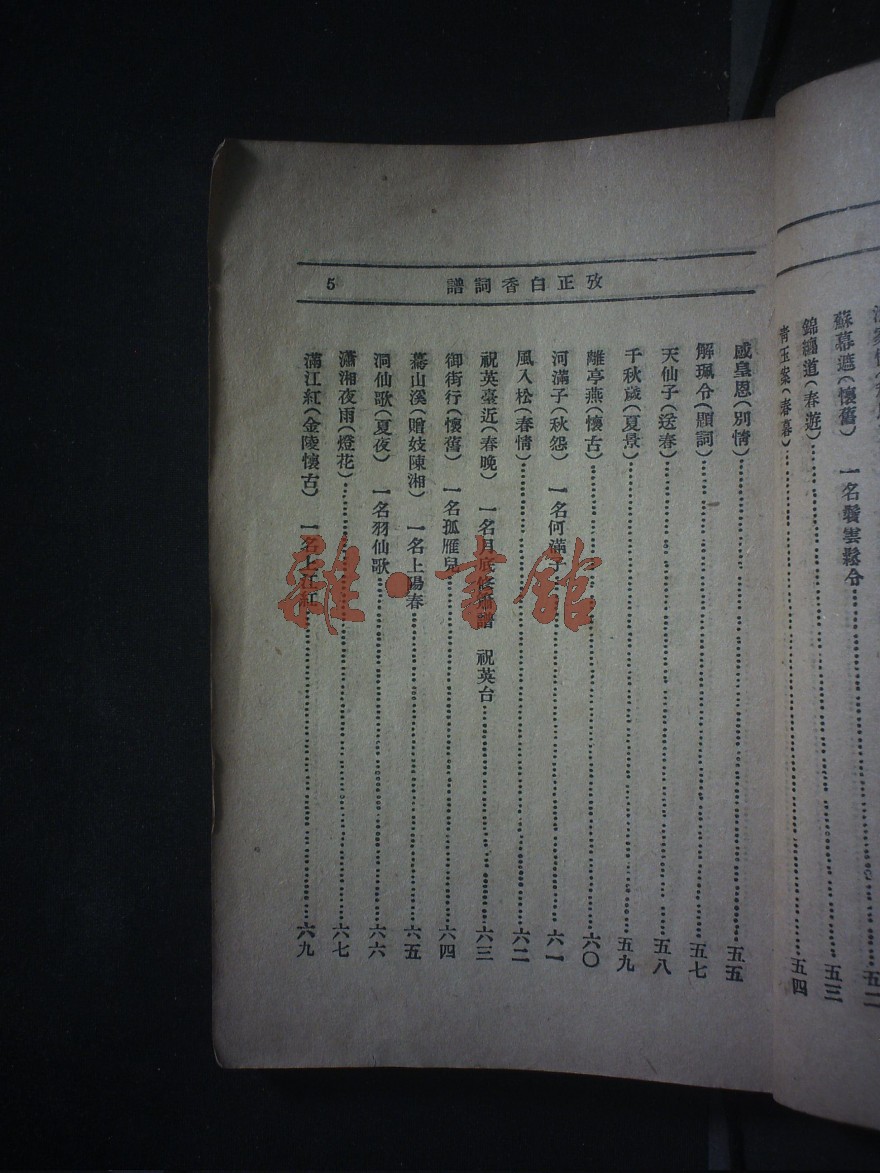 蘇幕遮(懷舊) 一名鬢雲鬆令……五二
錦纏道(春遊)……五三
青玉案(春暮)……五四
5 攷正白香詞譜
感皇恩(別情)……五五
解珮令(題詞)……五七
天仙子(送春)……五八
千秋歲(夏景)……五九
離亭燕(懷古)……六〇
河滿子(秋怨) 一名何滿子……六一
風入松(春情)……六二
祝英臺近(春晚) 一名月底修簫譜 祝英台……六三
御街行(懷舊) 一名孤雁兒……六四
驀山溪(贈妓陳湘) 一名上陽春……六五
洞仙歌(夏夜) 一名羽仙歌……六六
瀟湘夜雨(燈花)……六七
滿江紅(金陵懷古) 一名上江紅……六九
雜·書館